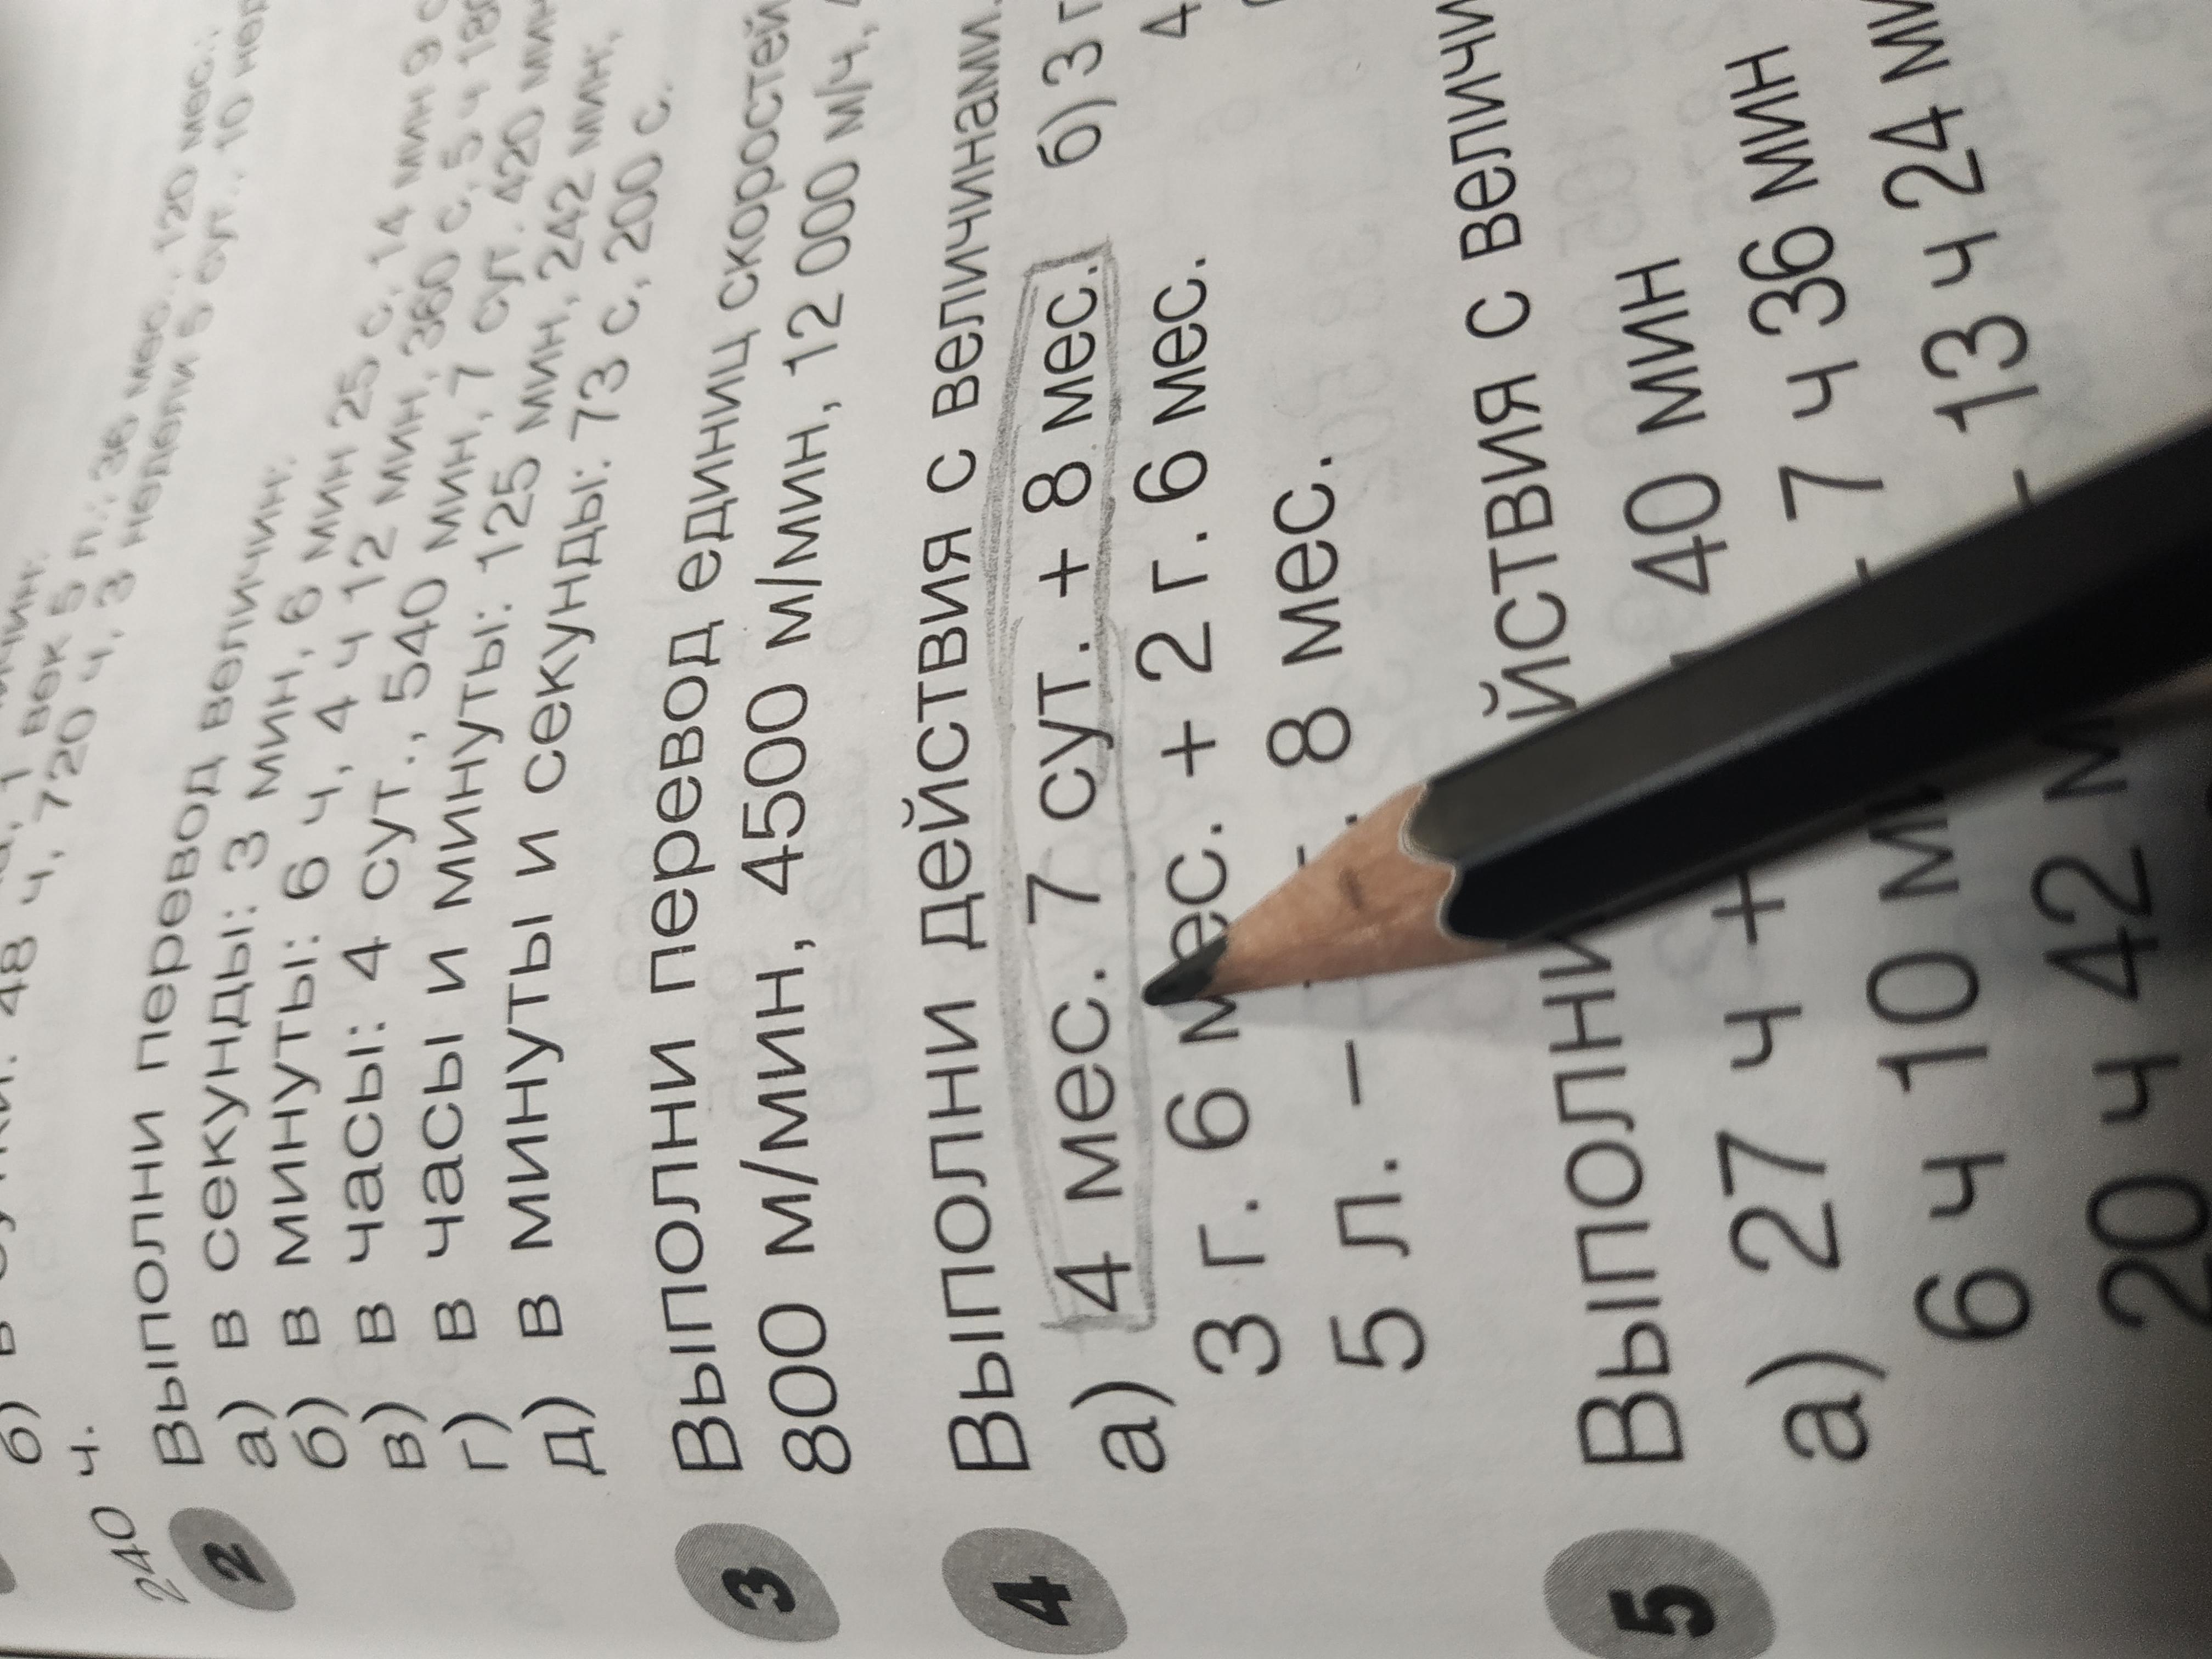 б) в
240 ч. 48 ч, 720 ч, 3 недели 5 сут., 10 нед
1 век 5 л.; 36 мес., 120 мес.;
2 Выполни перевод величин:
а) в секунды: 3 мин, 6 мин 25 с, 14 мин 9 с
б) в минуты: 6 ч, 4 ч 12 мин, 360 с, 5 ч 180
в) в часы: 4 сут., 540 мин, 7 сут. 420 мин
г) в часы и минуты: 125 мин, 242 мин;
д) в минуты и секунды: 73 с, 200 с.
3 Выполни перевод единиц скоростей
800 м/мин, 4500 м/мин, 12 000 м/ч,
4 Выполни действия с величинами.
а) 4 мес. 7 сут. + 8 мес. б) 3 г
3 г. 6 мес. + 2 г. 6 мес. 4
5 л. – 8 мес.
5 Выполни йствия с величи
а) 27 ч + 40 мин
6 ч 10 м 7 ч 36 мин
20 ч 42 м – 13 ч 24 ми